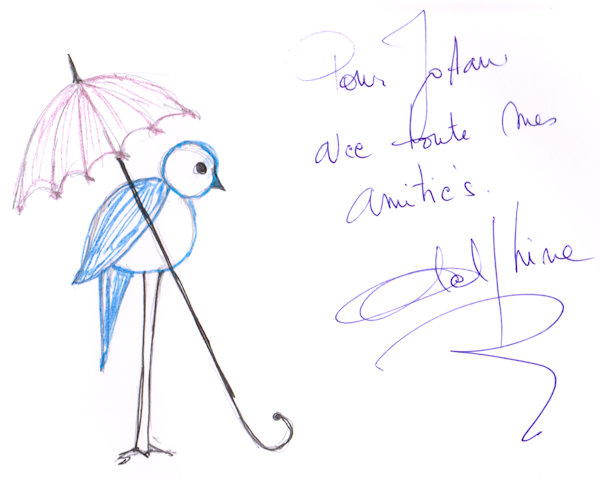 Pour Johan
avec toute mes
amitiés.
Delphine